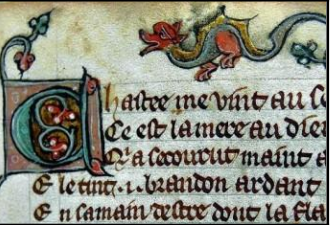 Chastee me vint au se
Ce est la mere au dieu
Qui a secourut maint a
E le tint .i. brandon ardant
E n sa main destre dont la fla